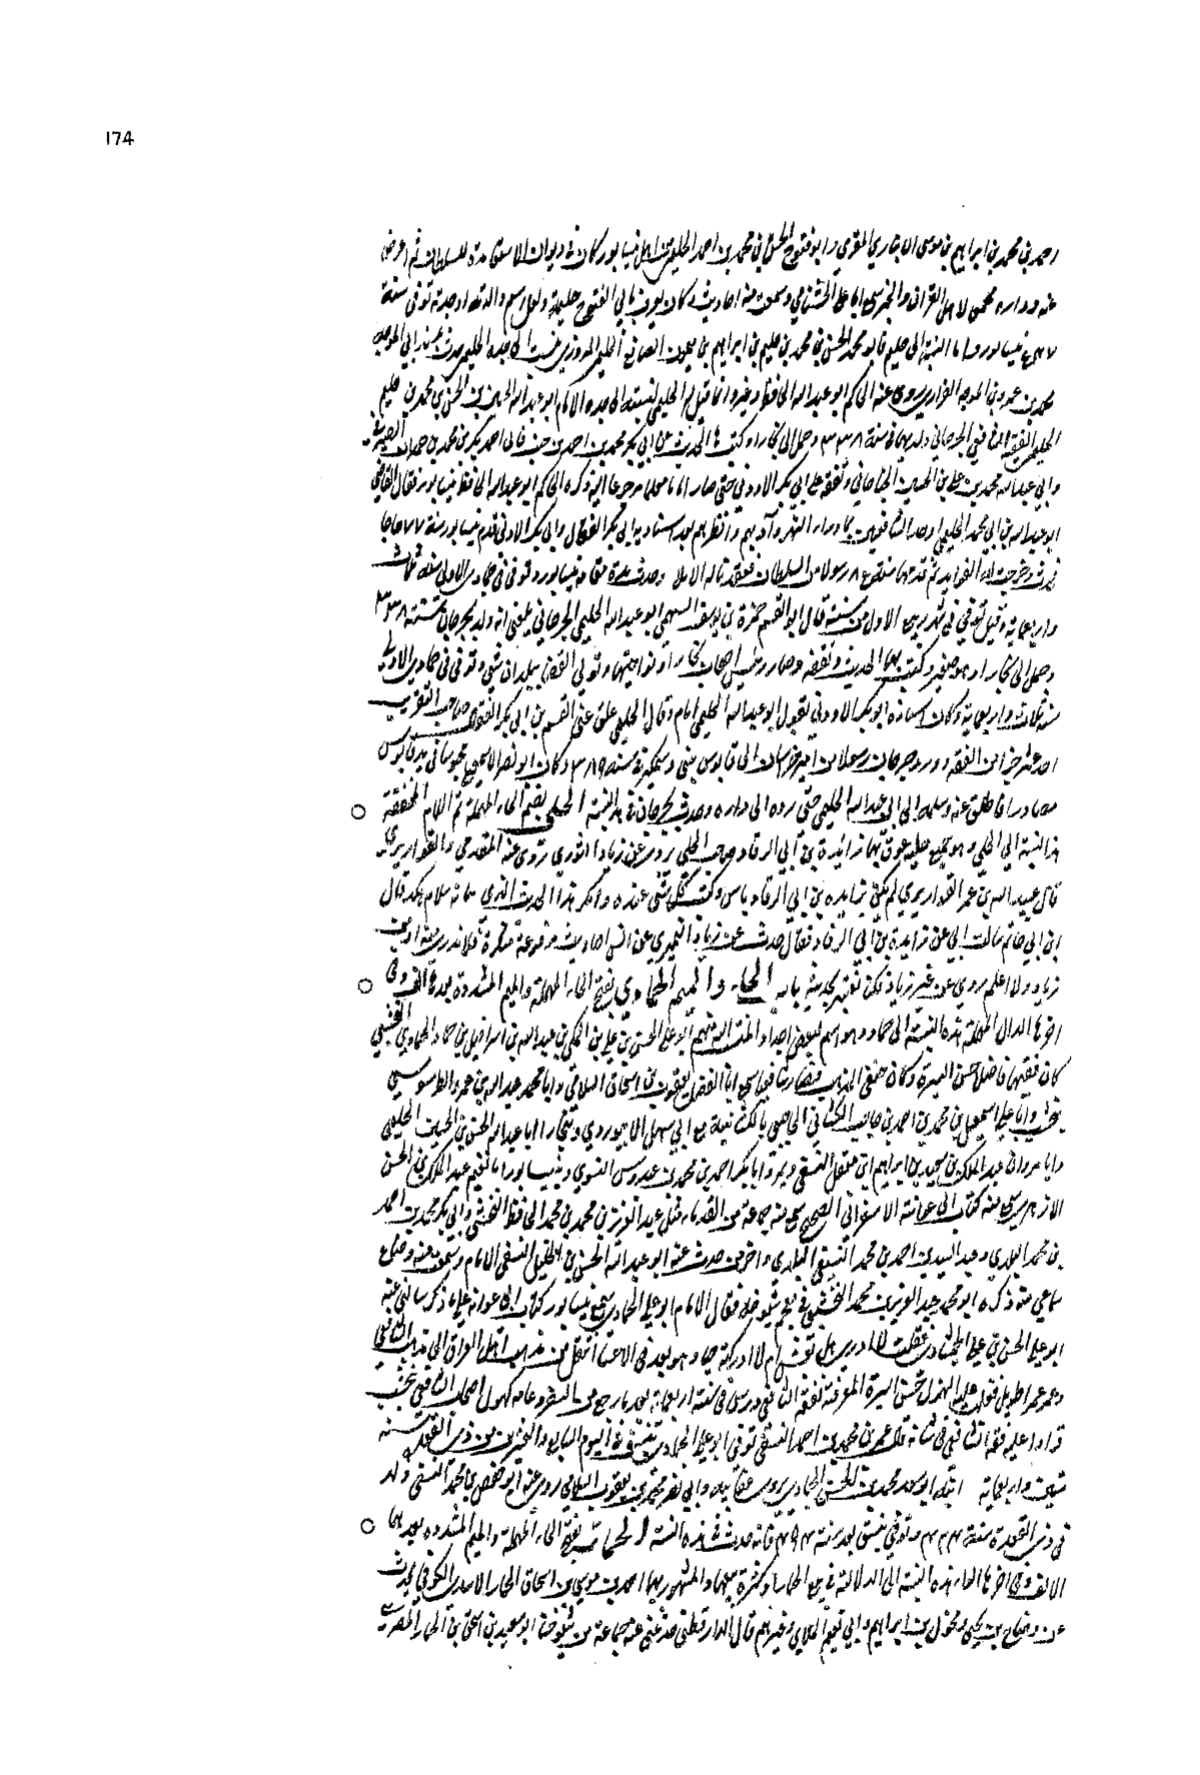 174
احمد بن محمد بن ابراهيم بن موسى الانباري المقري وابو فتوح الحسن بن محمد بن احمد الحليمي من اهل نيسابور كان في ديوان الاستيفا مدة للسلطان ثم اعرض
عنه وداره مجمع لاهل القرآن والخير سمع ابا علي الخشنامي وسمعت منه احاديث وكان يعرف بابي الفتوح حليمة ولعل اسم والدته او جدته توفي سنة
نيسابور واما النسبة الى حليم فابو محمد الحسن بن محمد بن حليم بن ابراهيم بن ميمون الصائغ الحليمي المروزي نسب الى جده الحليم حدث بمسند ابي الموجه
محمد بن عمرو بن الموجه الفزاري روى عنه الحاكم ابو عبد الله الحافظ وغيره انما قيل له الحليمي لنسبته الى جده والامام ابو عبد الله الحسين بن الحسن بن محمد بن حليم
الحليمي الفقيه الشافعي الجرجاني ولد بها في سنة ٣٣٨ وحمل الى بخارا وكتب بها الحديث عن ابي بكر محمد بن احمد بن خنب وابي احمد بكر بن محمد بن حمدان الصيرفي
وابي عبد الله محمد بن علي بن الحسين الجباخاني وتفقه على ابي بكر الاودني حتى صار اماما معظما مرجوعا اليه ذكره الحاكم ابو عبد الله الحافظ نيسابور فقال القاضي
ابو عبد الله بن ابي محمد الحليمي اوحد الشافعيين بما وراء النهر وآدبهم وانظرهم بعد استاذيه ابي بكر القفال وابي بكر الاودني قدم نيسابور سنة ٧٧ حاجا
فحدث وخرجت له الفوايد ثم قدمها رسولا من السلطان فعقد ناله الاملا وحدث مدة مقامه بنيسابور وتوفي في جمادى الاولى سنة ثلاث
واربعماية وقيل توفي في شهر ربيع الاول من سنة قال ابو القسم حمزة بن يوسف السهمي ابو عبد الله الحليمي الجرجاني بلغني انه ولد بجرجان سنة ٣٣٨
وحمل الى بخارا وهو صغير وكتب بها الحديث وتفقه وصار رئيس اصحاب بخارا ونواحيها وتولى القضا ببلدان شتى وتوفي في جمادى الاولى
سنة ثلاث واربعماية وكان استاذه ابو بكر الاودني يقول ابو عبد الله الحليمي امام وقال الحليمي علق عني القسم بن ابي بكر القفال صاحب التقريب
احد عشر جزا من الفقه وورد جرجان رسولا من امير خراسان الى قابوس بن وشمكير في سنة ٣٨٩ وكان ابو نصر الاسمعيلي محبوسا في يد قابوس
مصادرا فاطلق عنه وسلمه الى ابي عبد الله الحليمي حتى رده الى داره وحدث بجرجان في هذه النسبة الحلي بضم الحاء المهملة ثم اللام المخففة
هذا النسبة الي الحلي وهو جمع حلية عرف بها زائدة بن ابي الرقاد صاحب الحلي يروي عن زياد النميري روى عنه المقدمي والقواريري
قال عبيد الله بن عمر القواريري لم يكن بزايدة بن ابي الرقاد باس وكتبت كل شي عنده وانكر هذا الحديث الذي حدثنا به سلام يحكه قال
ابن ابي حاتم سالت ابي عن زايدة بن ابي الرقاد فقال حدث عن زياد النميري عن انس احاديث مرفوعة منكرة فلا ندري منه او من
زياد ولا اعلم روى عن غير زياد فكنا نعتبر بحديثه باب الحاء والميم الحمادي بفتح الحاء المهملة والميم المشددة بعدها الف وفي
اخرها الدال المهملة هذه النسبة الى حماد وهو اسم لبعض اجداد المنتسب اليه منهم ابو علي الحسن بن علي بن المكي بن عبد الله بن اسرافيل بن حماد الحمادي النخشبي
كان فقيها فاضلا حسن السيرة وكان حنفي المذهب فصار شافعيا سمع ابا الفضل يعقوب بن اسحاق السلامي وابا محمد عبد الله بن عمرو الطرسوسي
بنخشب وابا علي اسمعيل بن محمد بن احمد بن حاجب الكشاني الحاجبي بالكشانية مع ابي سهل الابيوردي وببخارا ابا عبد الله الحسين بن الحسن الحليمي
وابا مروان عبد الملك بن سعيد بن ابراهيم ابن معقل النسفي وبمرو ابا بكر احمد بن محمد بن عبدوس النسوي وبنيسابور ابا نعيم عبد الملك بن الحسن
الازهري سمع منه كتاب ابي عوانة الاسفرائني الصحيح سمع منه جماعة من القدماء مثل عبد العزيز بن محمد بن محمد الحافظ النخشبي وابي بكر محمد بن احمد
بن محمد البلدي وعبد السيد بن احمد بن محمد النسفي البلدي واخر من حدث عنه ابو عبد الله الحسين بن الخليل النسفي الامام وسمعت منه وضاع
سماعي منه ذكره ابو محمد عبد العزيز بن محمد النخشبي في معجم شيوخه فقال الامام ابو علي الحمادي سمع بنيسابور كتاب ابي عوانة على ما ذكر سالني عنه
ابو علي الحسن بن علي الحمادي فقلت لا ادري هل توفي ام لا ادركته حيا وهو بعد في الاحيا انتقل من مذهب اهل العراق الى مذهب الشافعي
وعمر عمرا طويلا حسن السيرة المعرفة بفقه الشافعي ودرس في سنة اربعماية بعد ما رجع من السفر وعامة كهول اصحاب الشافعي بنخشب
قراوا عليه فقه الشافعي في شانه قال عمر بن محمد بن احمد النسفي توفي ابو علي الحمادي بنسف في اليوم السابع والعشرين من ذي القعدة سنة
ستين واربعماية ابنه ابو سعد محمد بن الحسن الحمادي يروي عن ابيه وابي نصر محمد بن يعقوب السلامي روى عنه ابو حفص بن محمد النسفي ولد
في ذي القعدة سنة ٤٢٤ وتوفي بنسف بعد سنة ٤٩٤ فانه حدث في هذه السنة الحمار بفتح الحاء المهملة والميم المشددة بعدهما
الالف وفي اخرها الراء هذه النسبة الى الدلالة في بيع الحمار او كثرة بيعها والمشهور بها احمد بن موسى بن اسحاق الحمار الاسدي الكوفي يحدث
عن وضاح بن يحيى ومخول بن ابراهيم وابي نعيم الملائي وغيرهم قال الدارقطني حدثني عنه جماعة من شيوخنا ابو سعيد بن اسحق بن الحمار المصري